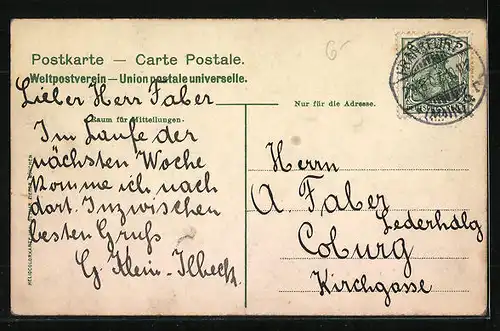 Postkarte — Carte Postale.
Weltpostverein — Union postale universelle.
Lieber Herr Faber
Raum für Mitteilungen.
Im Laufe der
nächsten Woche
komme ich nach
dort. Inzwischen
besten Gruss
G. Klein-Ilbeck
Nur für die Adresse.
Herrn
A. Faber
Lederhdlg
Coburg
Kirchgasse